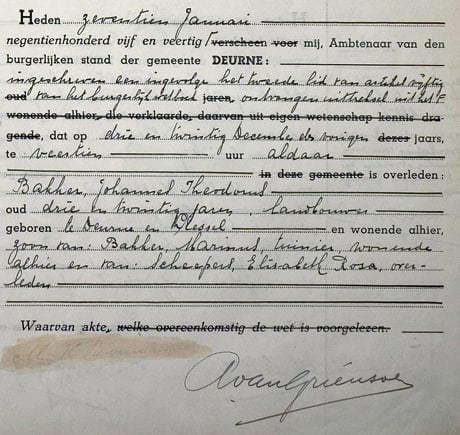 Heden zeventien Januari
negentienhonderd vijf en veertig verscheen voor mij, Ambtenaar van den
burgerlijken stand der gemeente DEURNE:
ingeschreven een ingevolge het tweede lid van artikel vijftig
oud van het burgerlijk wetboek jaren, ontvangen uittreksel uit het
wonende alhier, die verklaarde, daarvan uit eigen wetenschap kennis dra-
gende, dat op drie en twintig December des vorigen dezes jaars,
te veertien uur aldaar
in deze gemeente is overleden:
Bakker, Johannes Theodorus
oud drie en twintig jaren, landbouwer
geboren te Deurne en Liessel en wonende alhier,
zoon van: Bakker, Marinus, tuinier, wonende
alhier en van: Scheepers, Elisabeth Rosa, over-
leden
Waarvan akte, welke overeenkomstig de wet is voorgelezen.